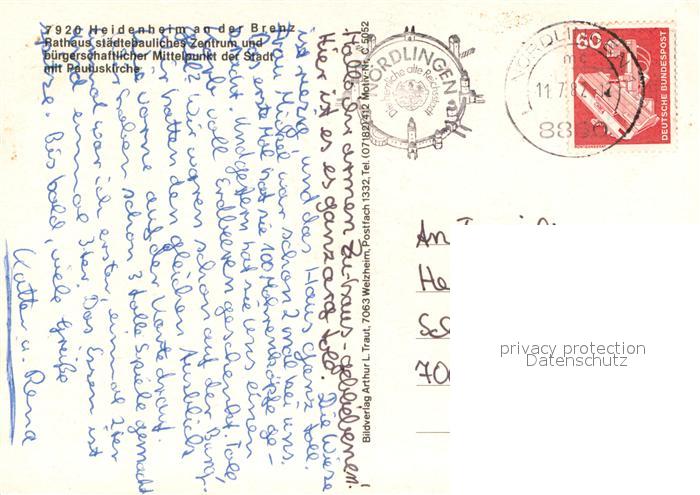 7920 Heidenheim an der Brenz
Rathaus städtebauliches Zentrum und
bürgerschaftlicher Mittelpunkt der Stadt
mit Pauluskirche
Bildverlag Arthur L. Traut, 7063 Welzheim, Postfach 1332, Tel. (07182) 412 Motiv-Nr. 5052
NÖRDLINGEN
alte Reichsstadt
NÖRDLINGEN
11.7.8
8860
60
DEUTSCHE BUNDESPOST
Hallo ihr armen zu-haus-gebliebenen!
Hier ist es ganz arg toll. Die Wiese
ist riesig und das Haus ganz toll.
Frau Michel war schon 2 mal bei uns.
Das erste Mal hat sie 100
bracht. Und gestern hat sie uns einen
voll Erdbeeren geschenkt. Toll
Wir waren schon auf der Burg
hatten den gleichen Ausblick
vorne auf der Karte drauf.
haben schon 3 tolle Spiele gemacht
mal war ich erster, einmal 2ter
einmal 3ter. Das Essen ist
Spitze. Bis bald, viele Grüße
u. Rena
An
He
70
privacy protection
Datenschutz